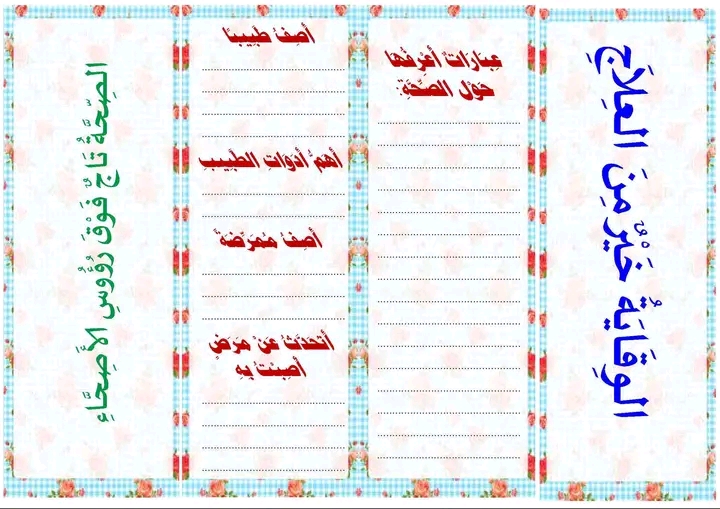 الوِقَايَةُ خَيْرٌ مِنَ العِلَاجِ
عِبَارَاتٌ أَعْرِفُهَا
حَوْلَ الصِّحَّةِ:
أَصِفُ طَبِيبًا
أَهَمُّ أَدَوَاتِ الطَّبِيبِ
أَصِفُ مُمَرِّضَةً
أَتَحَدَّثُ عَنْ مَرَضٍ
أُصِبْتُ بِهِ
الصِّحَّةُ تَاجٌ فَوْقَ رُؤُوسِ الأَصِحَّاءِ